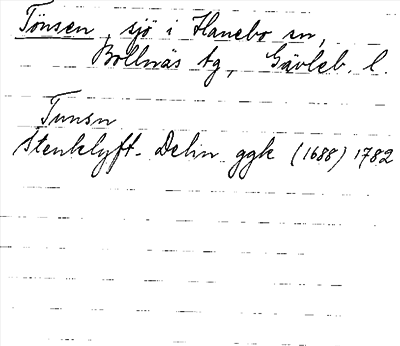 Tönsen, sjö i Hanebo sn,
Bollnäs tg, Gävleb. l.
Tunsn
Stenklyft. Delin ggk (1688) 1782